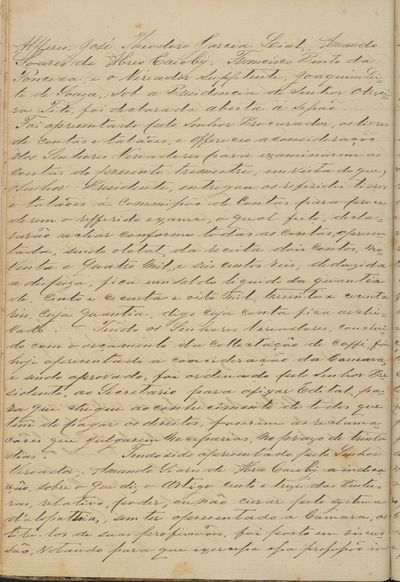 Alferes José Theodoro Garcia Leial, Amando
Soares de Abreo Caioby, Francisco Pinto da
Fonceca, e o Vereador Supplente, Joaquim Li-
te de Souza, Sob a Presidencia do Senhor Olivei-
ra Tito, foi declarada aberta á Sessão.
Foi apresentado pelo Senhor Procurador, os livros
de contas e talões, e offereceu a consideração
dos Senhores Vereadores para examinarem as
contas do presente trimestre, em vista do que,
o Senhor Presidente, entregou os referidos livros
e talões á Commissão de Contas para proce-
derem o refferido exame, o qual feito, decla-
rarão achar conforme todas as contas apresen-
tadas, sendo o total da receita dois contos,
e quatro mil, e seis centos reis, deduzida
a despeza, fica um saldo liquido da quantia
de Cento e cecenta e oito mil, trezentos e cecenta
reis, cuja quantia digo cuja conta fica archi-
vada. Tendo os Senhores Vereadores, conclui-
do com o orçamento da collectação de Caffé, foi
hoje apresentado a consideração da Camara,
e sendo aprovado, foi ordenado pelo Senhor Pre-
sidente, ao Secretario para afixar Edital, pa-
ra que chegue ao conhecimento de todos que
tem de pagar os direitos, fazerem as reclama-
ções que julgarem necessarias, no prazo de trinta
dias. Tendo sido apresentado pelo Senhor
Vereador, Amando Soares de Abreo Caioby a indica-
ção, sobre o que diz o Artigo cento e treze das Postu-
ras, relativo, poder, ou não curar pelo systema
, sem ter apresentado a Camara, os
titulos de suas profissões, foi posto em discus-
são, votando para que exercesse essa profissão in-